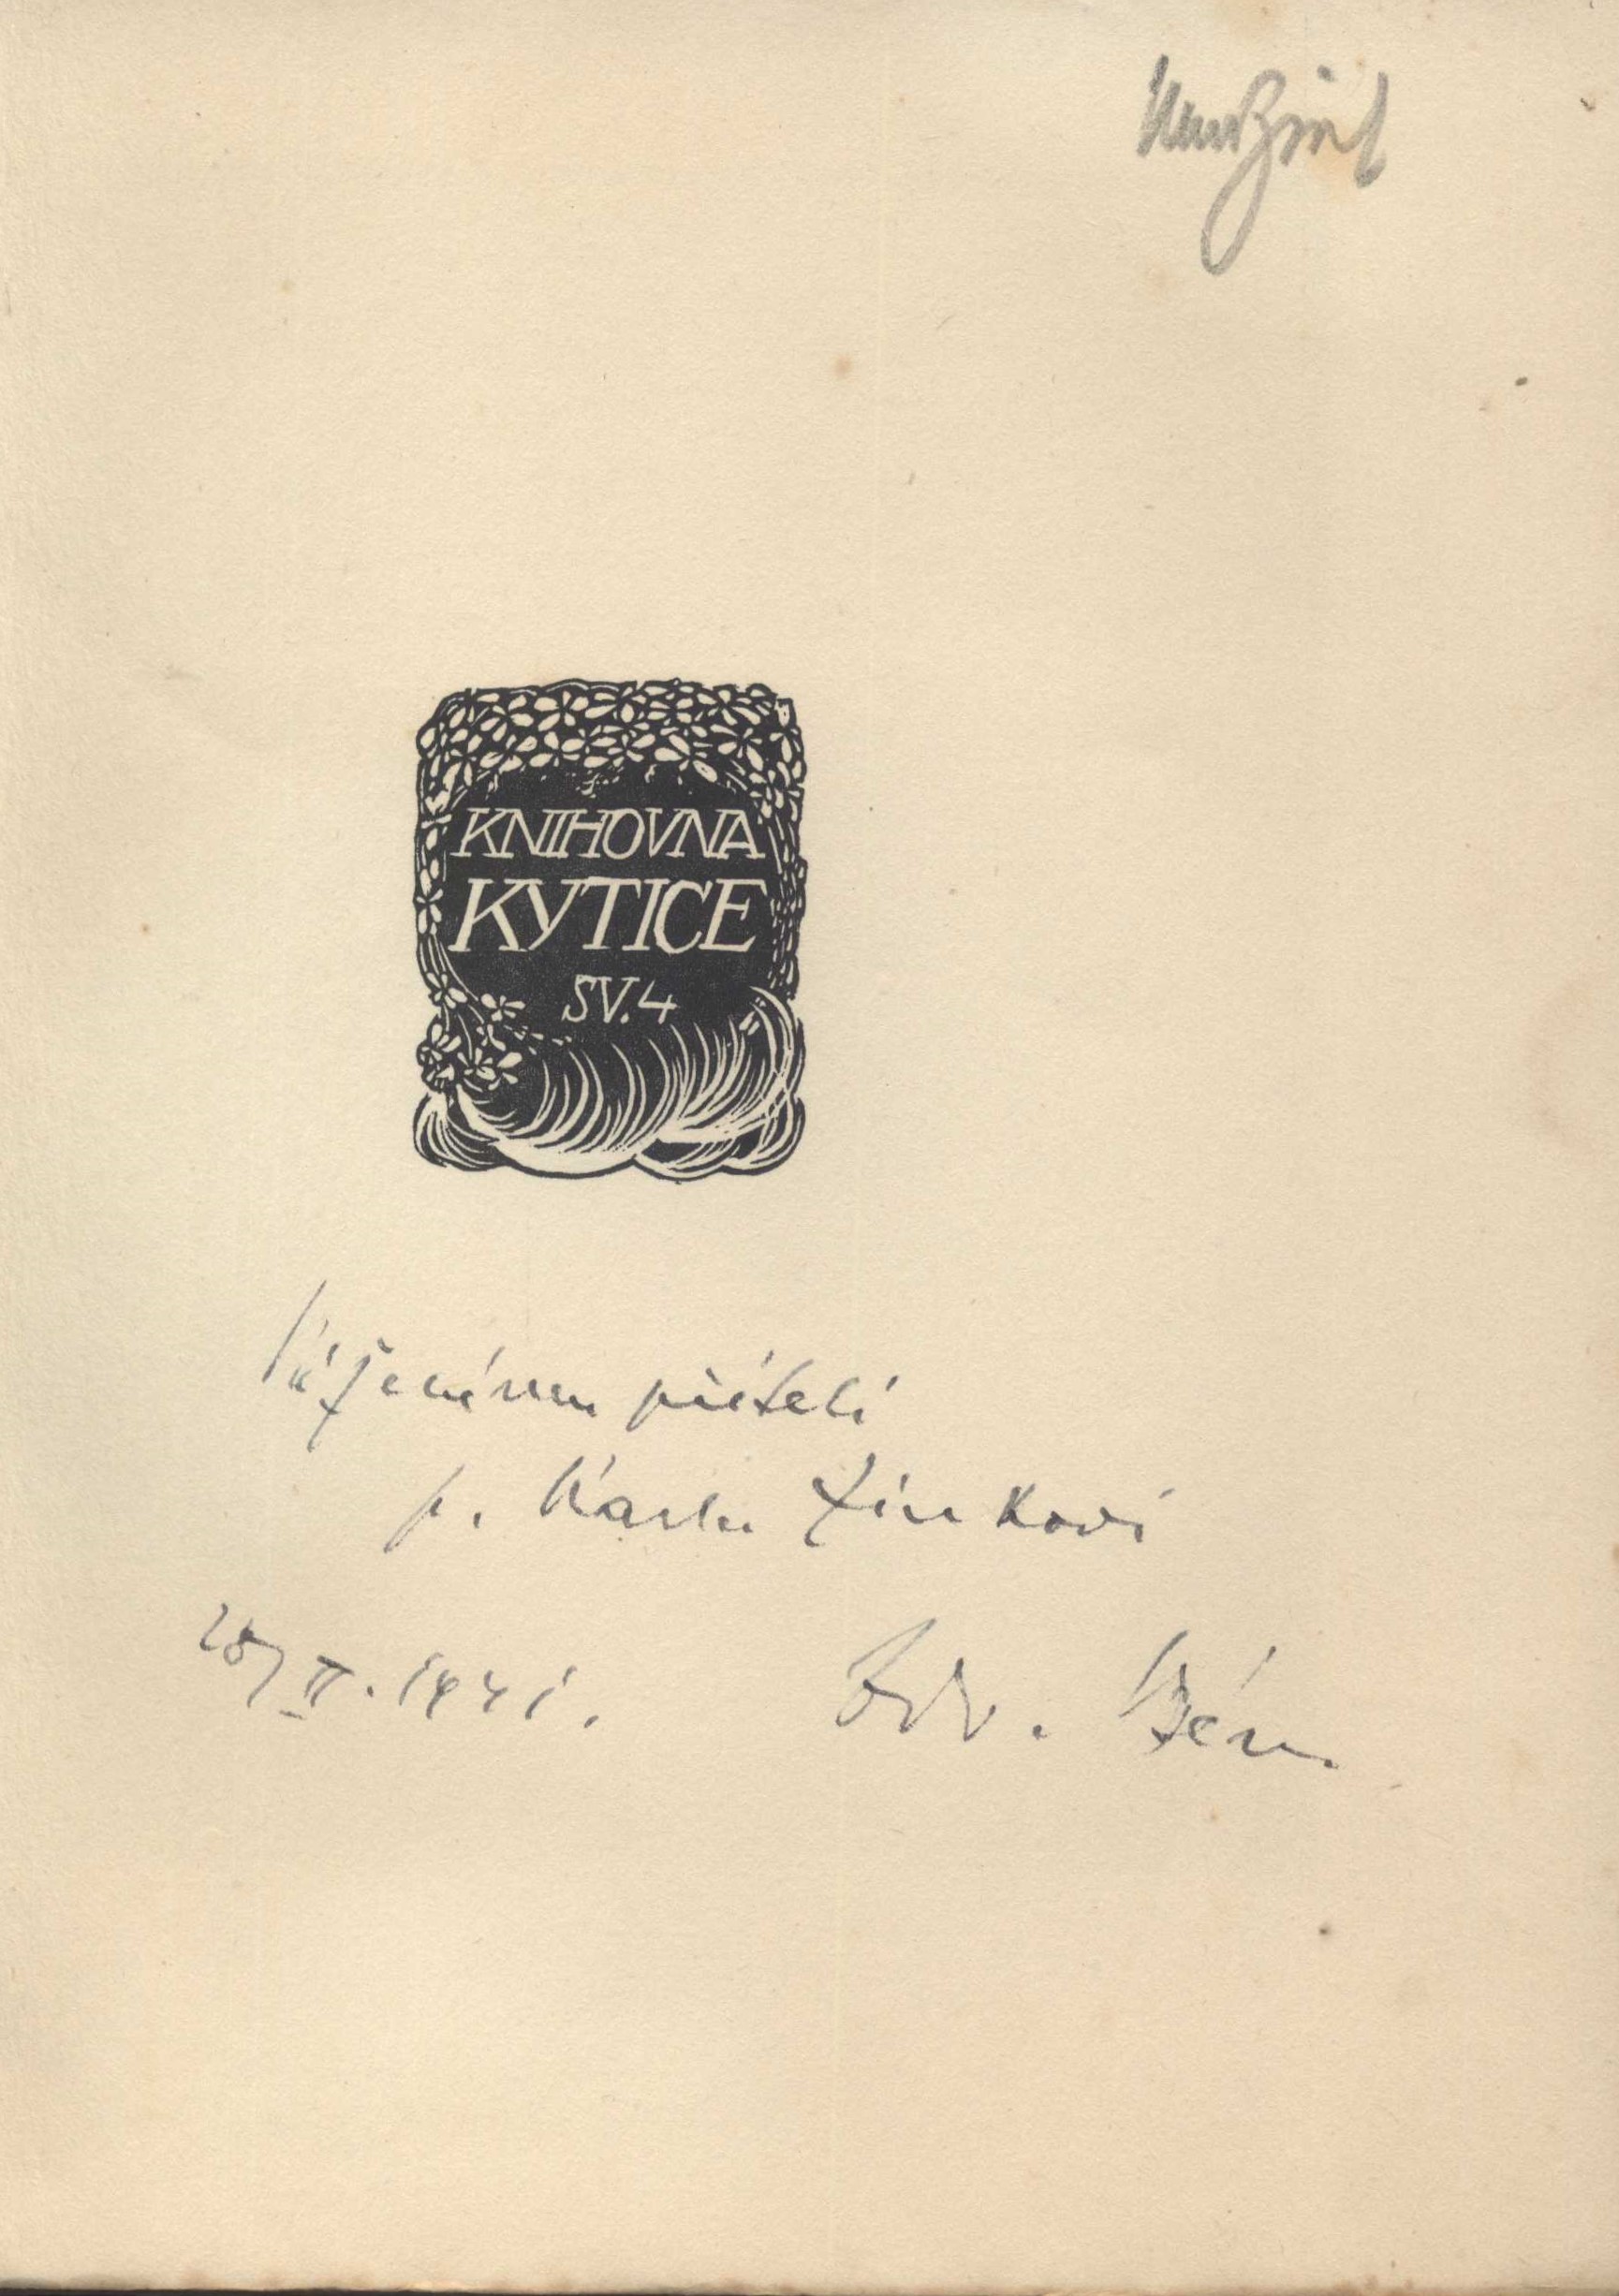 KNIHOVNA
KYTICE
SV. 4
Váženému příteli
p. Karlu Zinkovi
II. 1941.